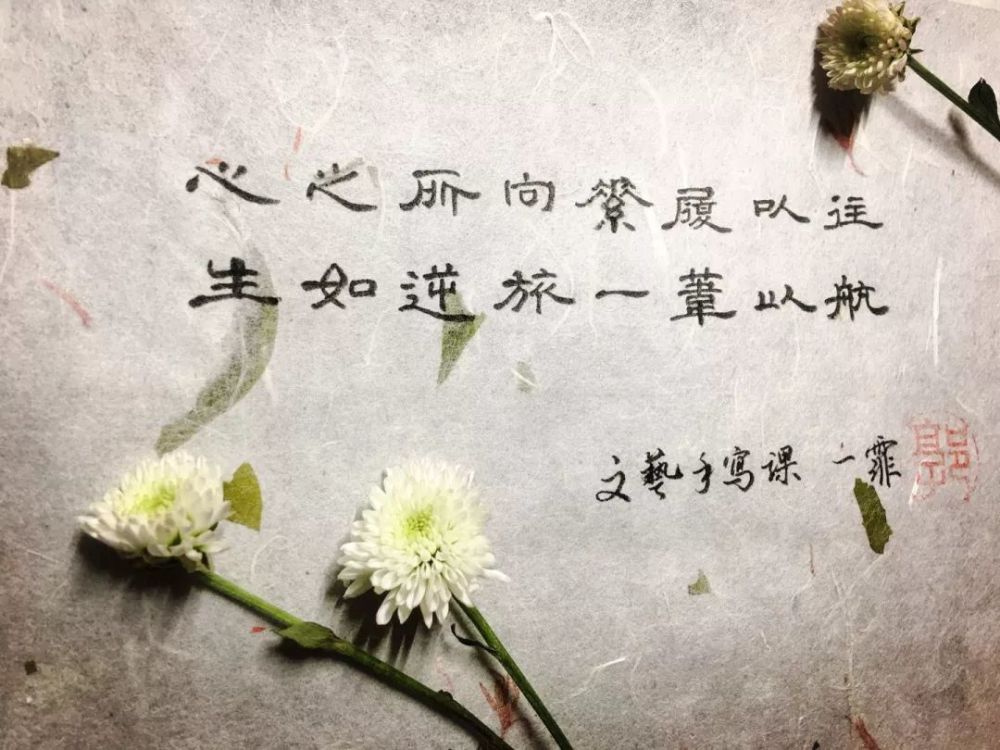 心之所向素履以往
生如逆旅一葦以航
文藝手寫课 一霏